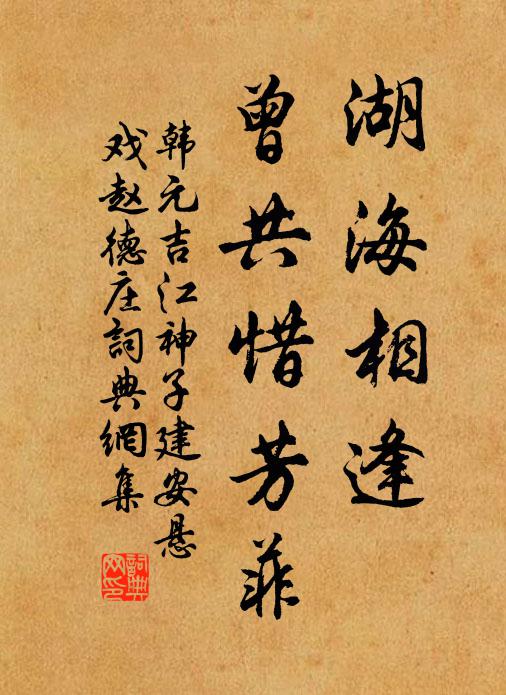 湖海相逢
曾共惜芳菲
韩元吉江神子建安悬
戏赵德庄詞典網集
詞典网印